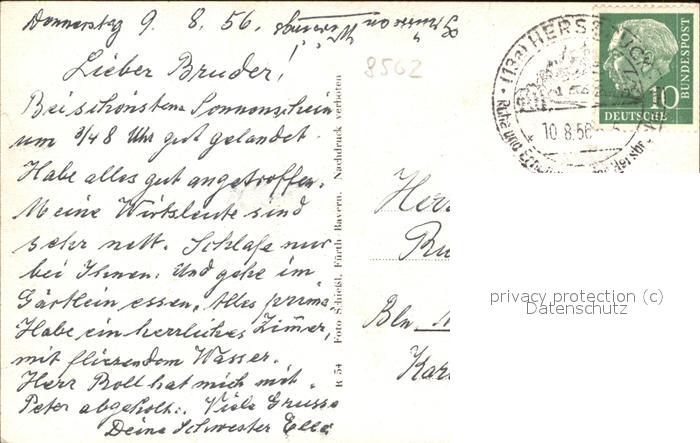 Donnerstag 9. 8. 56.
Lieber Bruder!
Bei schönstem Sonnenschein
um 3/48 Uhr gut gelandet.
Habe alles gut angetroffen.
Meine Wirtsleute sind
sehr nett. Schlafe nur
bei Ihnen. Und gehe im
Gärtlein essen, Alles prima,
Habe ein herrliches Zimer,
mit fliezendem Wasser.
Herr Boll hat mich mit
Peter abgeholt. Viele Grusse
Deine Schwester Elle
R 54 Foto Schießl, Fürth Bayern. Nachdruck verboten
8502
(13a) HERSBRUCK
10.8.56
Ruhe und
10
DEUTSCHE
BUNDESPOST
Herr
Ru
Bln
Kar
privacy protection (c)
Datenschutz